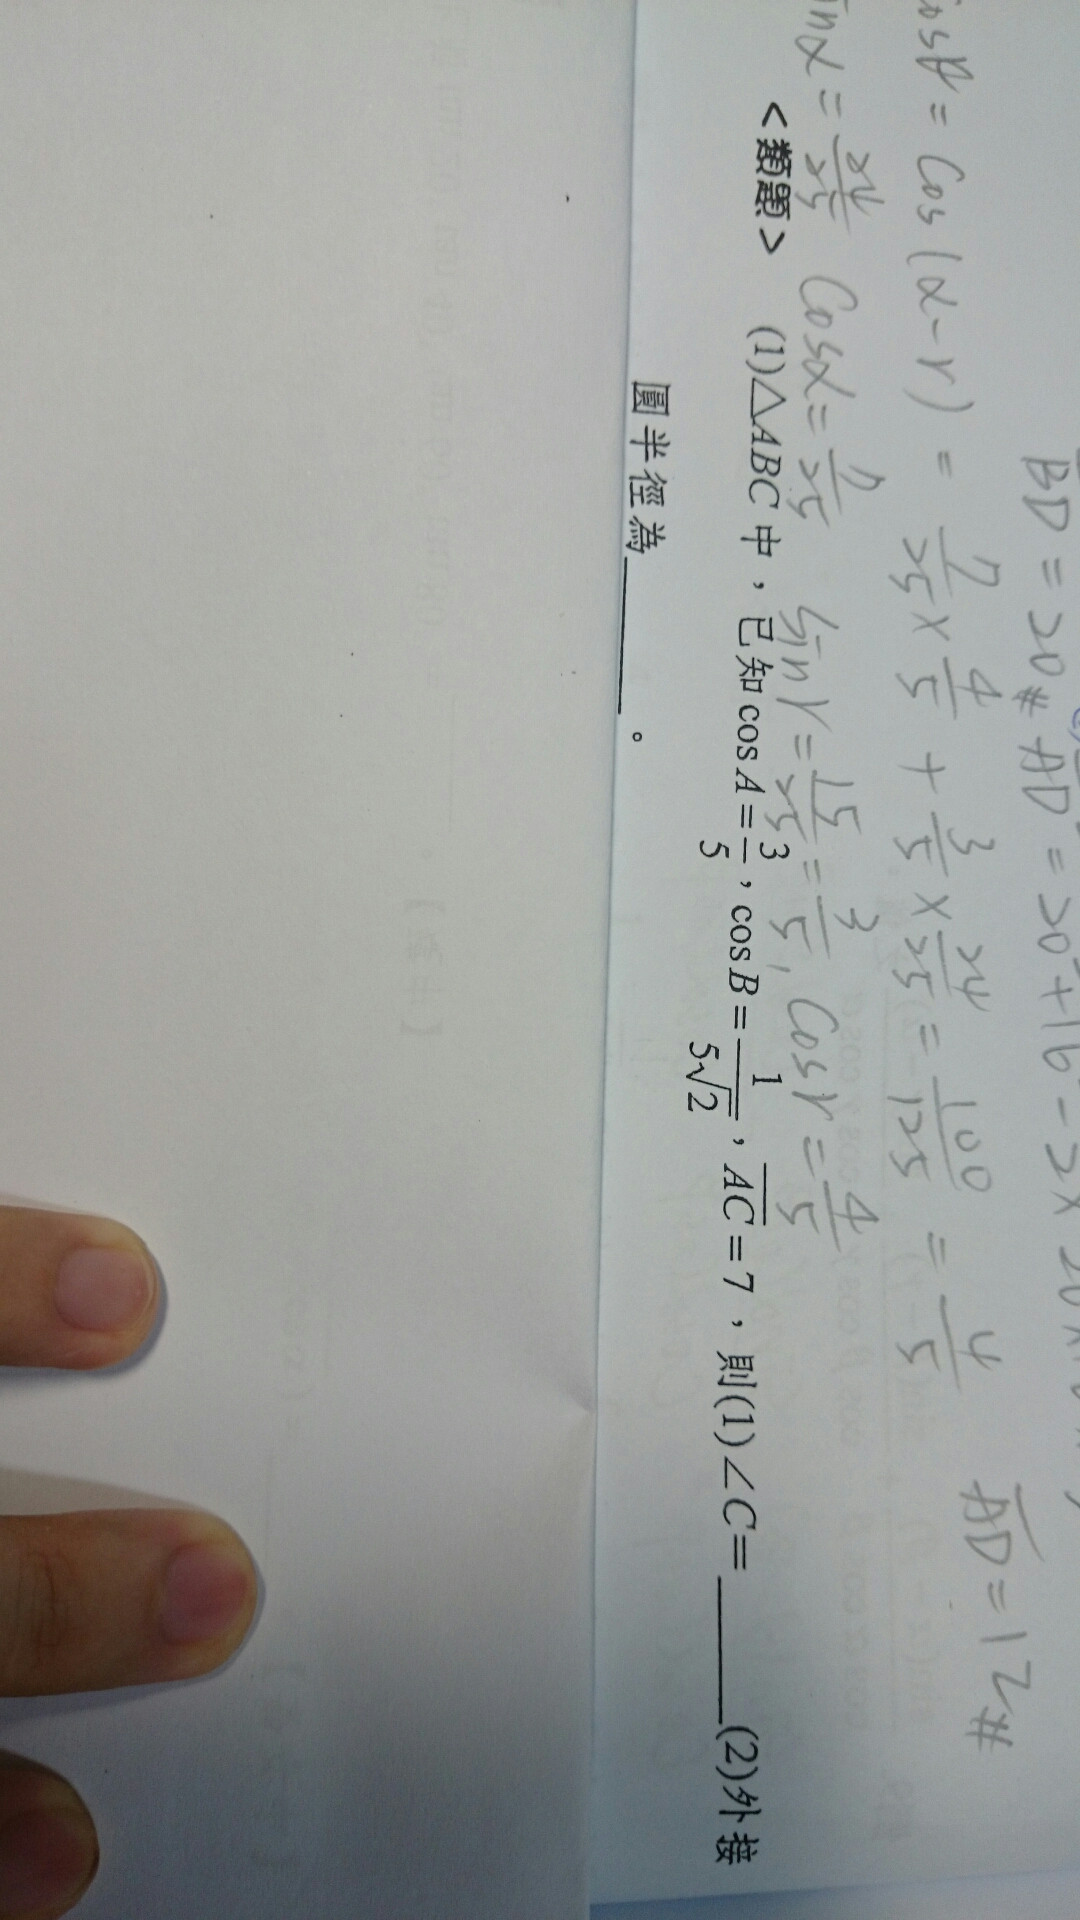 BD = 20# AD = 20² + 16² - 2 × 20 ×
= cos(α-γ) = 7/25 × 4/5 + 3/5 × 24/25 = 100/125 = 4/5 AD = 12#
inα = 24/25 Cosα = 7/25 sinγ = 15/25 = 3/5, Cosγ = 4/5
<類題> (1)△ABC 中，已知 cos A = 3/5，cos B = 1/5√2，AC = 7，則(1)∠C=______(2)外接
圓半徑為______。